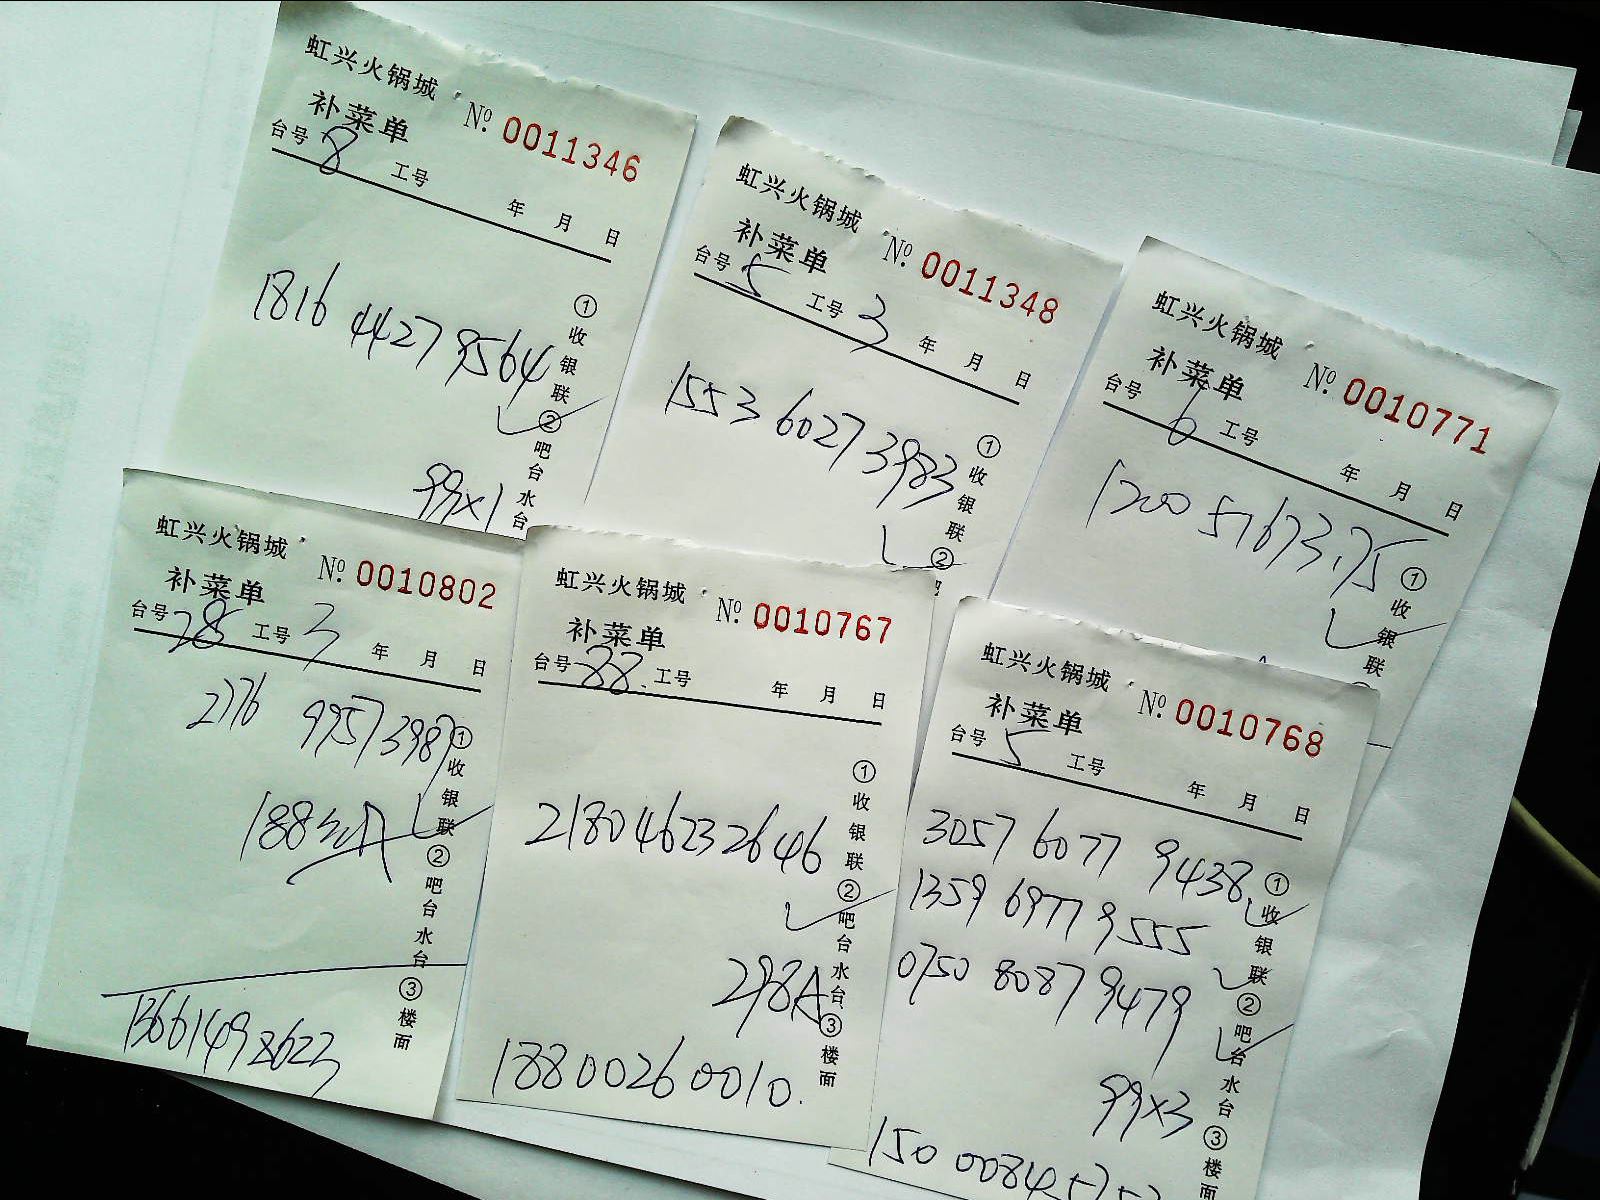 虹兴火锅城
补菜单 Nº 0011346
台号 8 工号
年 月 日
1816 4427 9564
99×1
①收银联 ②吧台水台
虹兴火锅城
补菜单 Nº 0011348
台号 5 工号 3
年 月 日
1553 6027 3983
①收银联 ②吧
虹兴火锅城
补菜单 Nº 0010771
台号 6 工号
年 月 日
①收银联
虹兴火锅城
补菜单 Nº 0010802
台号 28 工号 3 年 月 日
2176 9957 3987
188
13661492623
①收银联 ②吧台水台 ③楼面
虹兴火锅城
补菜单 Nº 0010767
台号 88 工号 年 月 日
2180 4623 2646
298A
18800260010
①收银联 ②吧台水台 ③楼面
虹兴火锅城
补菜单 Nº 0010768
台号 5 工号 年 月 日
3057 6077 9438
1359 6977 9555
0750 8087 9479
99×3
①收银联 ②吧台水台 ③楼面